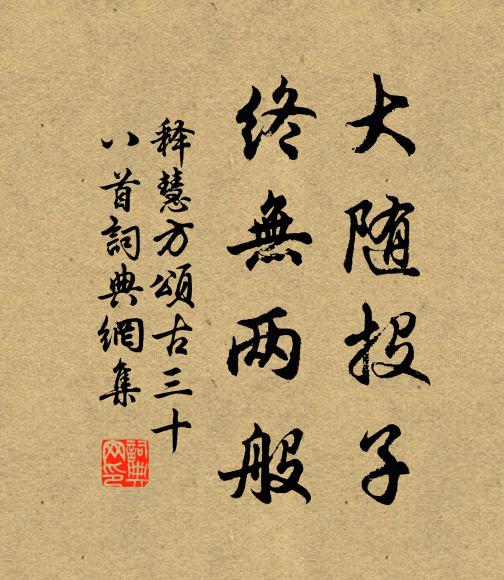 大随投子
終無两般
释慧方頌古三十
八首詞典網集
詞典网印